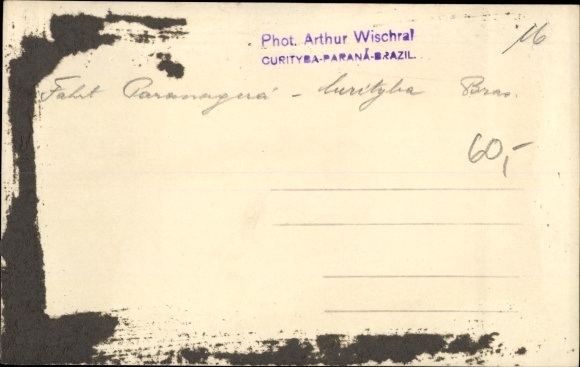 Phot. Arthur Wischral
CURITYBA-PARANÁ-BRAZIL.
16
Fahrt Paranaguá - Curityba Bras.
60,-